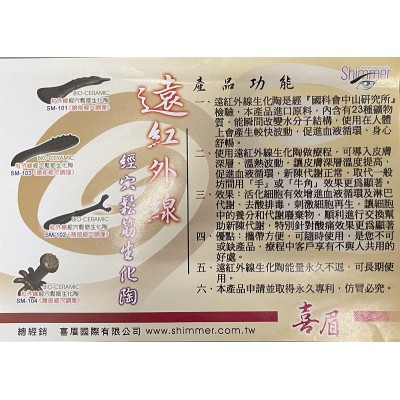 Shimmer
BIO-CERAMIC
紅外線經穴鬆筋生化陶
SM-101《臉部經穴調理》
BIO-CERAMIC
紅外線經穴鬆筋生化陶
SM-103《頭部經穴調理》
BIO-CERAMIC
紅外線經穴鬆筋生化陶
BIO-CERAMIC
紅外線經穴鬆筋生化陶
遠紅外線
經穴鬆筋生化陶
產品功能
一、遠紅外線生化陶是經『國科會中山研究所』
檢驗，本產品進口原料，內含有23種礦物
質，能瞬間改變水分子結構，使用在人體
上會產生較快波動，促進血液循環、身心
舒暢。
二、使用遠紅外線生化陶做療程，可導入皮膚
深層，溫熱波動，讓皮膚深層溫度提高，
促進血液循環，新陳代謝正常，取代一般
坊間用「手」或「牛角」效果更爲顯著。
三、效果：活化細胞有效增進血液循環及淋巴
代謝、去酸排毒，刺激細胞再生，讓細胞
中的養分和代謝廢棄物，順利進行交換幫
助新陳代謝，特別針對酸痛效果更爲顯著
四、優點：攜帶方便，可隨時使用，是您不可
或缺產品，療程中客戶享有不與人共用的
好處。
五、遠紅外線生化陶能量永久不退，可長期使
用。
六、本產品申請並取得永久專利，仿冒必究。
喜眉
總經銷 喜眉國際有限公司 www.shimmer.com.tw